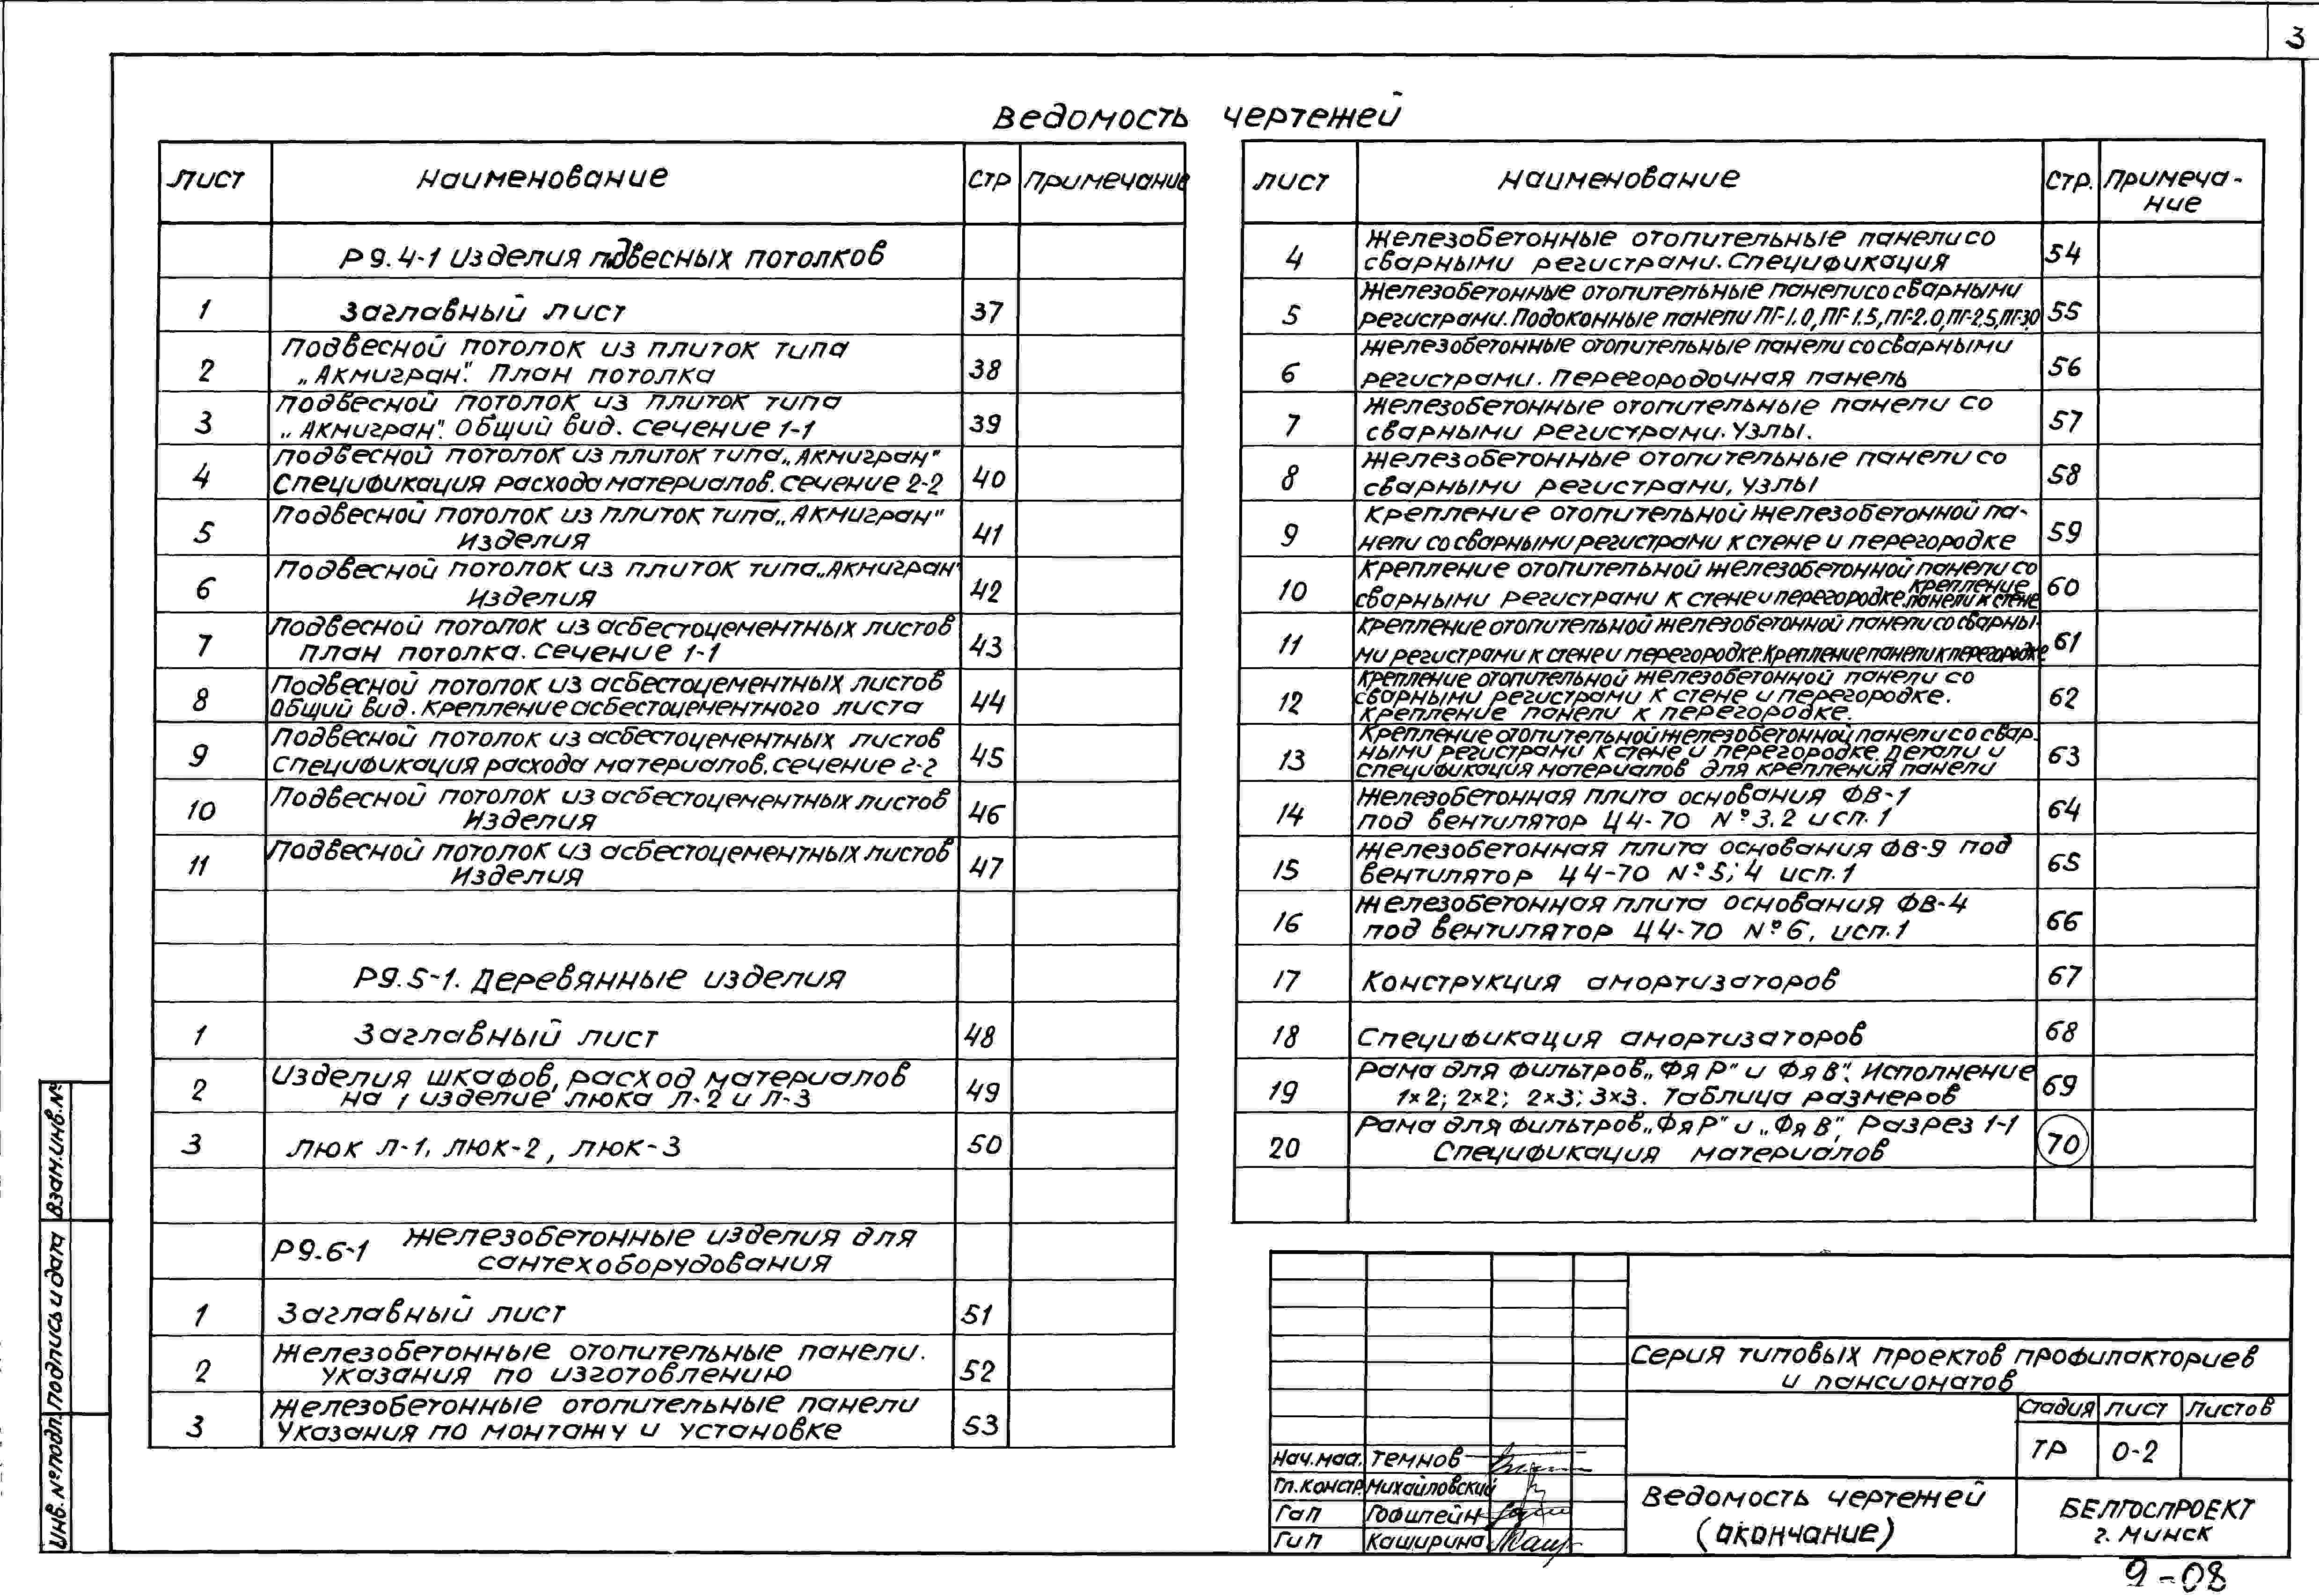 3
Ведомость чертежей
Лист Наименование Стр Примечание
Р9.4-1 Изделия подвесных потолков
1 Заглавный лист 37
2 Подвесной потолок из плиток типа
„Акмигран". План потолка 38
3 Подвесной потолок из плиток типа
„Акмигран". Общий вид. Сечение 1-1 39
4 Подвесной потолок из плиток типа „Акмигран"
Спецификация расхода материалов. Сечение 2-2 40
5 Подвесной потолок из плиток типа „Акмигран"
Изделия 41
6 Подвесной потолок из плиток типа „Акмигран"
Изделия 42
7 Подвесной потолок из асбестоцементных листов
План потолка. Сечение 1-1 43
8 Подвесной потолок из асбестоцементных листов
Общий вид. Крепление асбестоцементного листа 44
9 Подвесной потолок из асбестоцементных листов
Спецификация расхода материалов. Сечение 2-2 45
10 Подвесной потолок из асбестоцементных листов
Изделия 46
11 Подвесной потолок из асбестоцементных листов
Изделия 47
Р9.5-1. Деревянные изделия
1 Заглавный лист 48
2 Изделия шкафов, расход материалов
на 1 изделие люка Л-2 и Л-3 49
3 Люк Л-1, люк-2, люк-3 50
Р9.6-1 Железобетонные изделия для
сантехоборудования
1 Заглавный лист 51
2 Железобетонные отопительные панели.
Указания по изготовлению 52
3 Железобетонные отопительные панели
Указания по монтажу и установке 53
Лист Наименование Стр. Примеча-
ние
4 Железобетонные отопительные панели со
сварными регистрами. Спецификация 54
5 Железобетонные отопительные панели со сварными
регистрами. Подоконные панели ПГ-1.0, ПГ-1.5, ПГ-2.0, ПГ-2.5, ПГ-3.0 55
6 Железобетонные отопительные панели со сварными
регистрами. Перегородочная панель 56
7 Железобетонные отопительные панели со
сварными регистрами. Узлы. 57
8 Железобетонные отопительные панели со
сварными регистрами, узлы 58
9 Крепление отопительной железобетонной па-
нели со сварными регистрами к стене и перегородке 59
10 Крепление отопительной железобетонной панели со
сварными регистрами к стене и перегородке. Крепление
панели к стене 60
11 Крепление отопительной железобетонной панели со сварны-
ми регистрами к стене и перегородке. Крепление панели к перегородке 61
12 Крепление отопительной железобетонной панели со
сварными регистрами к стене и перегородке.
Крепление панели к перегородке. 62
13 Крепление отопительной железобетонной панели со свар-
ными регистрами к стене и перегородке. Детали и
спецификация материалов для крепления панели 63
14 Железобетонная плита основания ФВ-1
под вентилятор Ц4-70 №3.2 исп.1 64
15 Железобетонная плита основания ФВ-9 под
вентилятор Ц4-70 №5; 4 исп.1 65
16 Железобетонная плита основания ФВ-4
под вентилятор Ц4-70 №6, исп.1 66
17 Конструкция амортизаторов 67
18 Спецификация амортизаторов 68
19 Рама для фильтров „ФяР" и ФяВ". Исполнение
1×2; 2×2; 2×3; 3×3. Таблица размеров 69
20 Рама для фильтров „ФяР" и „ФяВ", Разрез 1-1
Спецификация материалов 70
Серия типовых проектов профилакториев
и пансионатов
Стадия Лист Листов
ТР 0-2
Нач.маа. Темнов
Гл.констр. Михайловский
ГАП Гофштейн
ГИП Каширина
Ведомость чертежей
(окончание)
БЕЛГОСПРОЕКТ
г. Минск
9-08
Инв.№подл. Подпись и дата Взам.инв.№